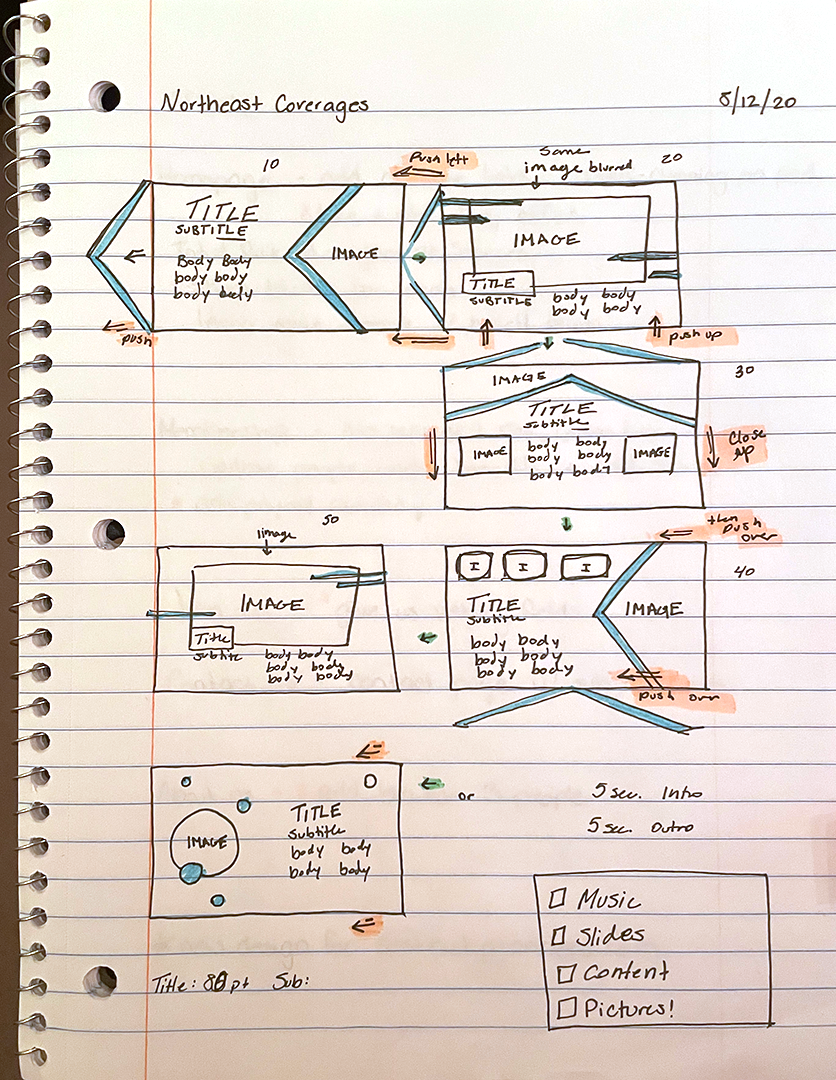 Northeast Coverages
8/12/20
10
Push left
Same
image blurred
20
TITLE
SUBTITLE
Body Body
body body
body body
IMAGE
push
IMAGE
TITLE
SUBTITLE
body body
body body
push up
30
IMAGE
TITLE
subtitle
IMAGE
body body
body body
body body
IMAGE
Close
up
50
1image
IMAGE
Title
subtitle
body body
body body
body body
then
push
over
40
I
I
I
TITLE
subtitle
body body
body body
body body
IMAGE
push over
IMAGE
TITLE
subtitle
body body
body body
or
5 sec. Intro
5 sec. Outro
Music
Slides
Content
Pictures!
Title: 80pt Sub: